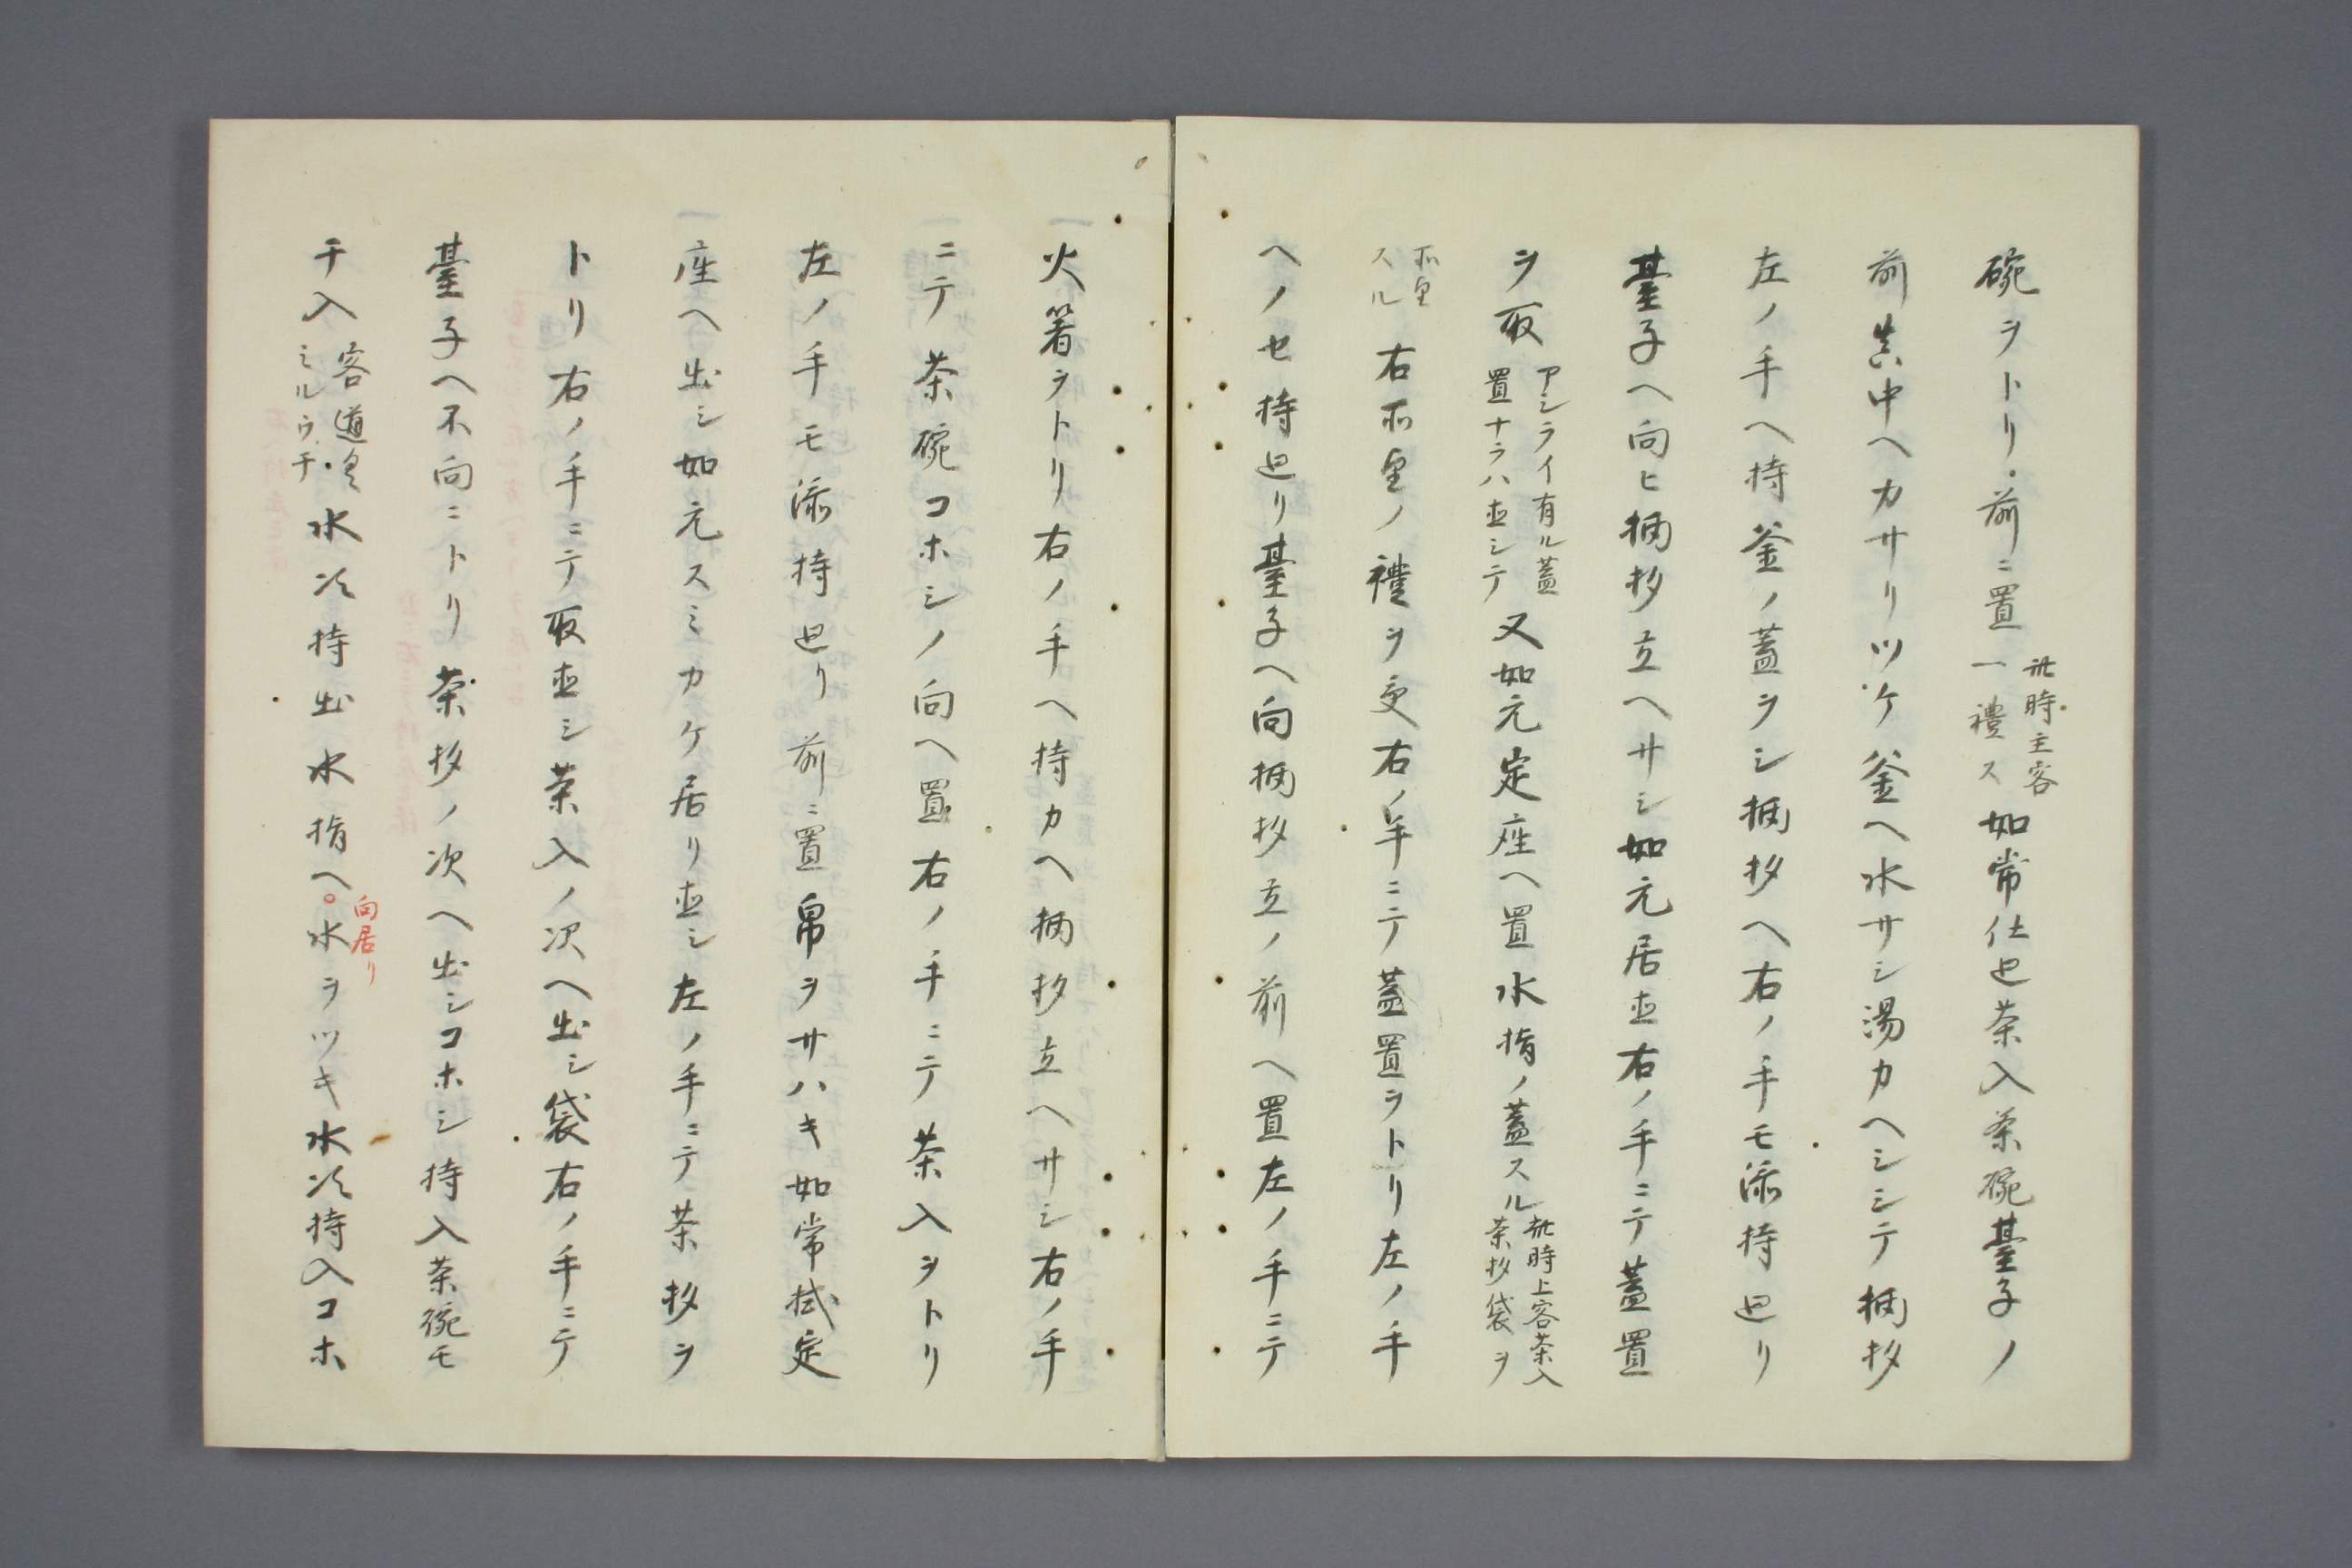 碗ヲトリ前ニ置此時主客一禮ス如常仕廻茶入茶碗臺子ノ
前真中ヘカサリツケ釜ヘ水サシ湯カヘシシテ柄杓
左ノ手ヘ持釜ノ蓋ヲシ柄杓ヘ右ノ手モ添持廻リ
臺子ヘ向ヒ柄杓立ヘサシ如元居並右ノ手ニテ蓋置
ヲ取アシライ有ル蓋置ナラハ並シテ又如元定座ヘ置水指ノ蓋スル此時上客茶入茶杓袋ヲ
所望スル右所望ノ禮ヲ受右ノ手ニテ蓋置ヲトリ左ノ手
ヘノセ持廻リ臺子ヘ向柄杓立ノ前ヘ置左ノ手ニテ
火箸ヲトリ右ノ手ヘ持カヘ柄杓立ヘサシ右ノ手
ニテ茶碗コホシノ向ヘ置右ノ手ニテ茶入ヲトリ
左ノ手モ添持廻リ前ニ置帛ヲサハキ如常拭定
座ヘ出シ如元スミカケ居リ並シ左ノ手ニテ茶杓ヲ
トリ右ノ手ニテ取並シ茶入ノ次ヘ出シ袋右ノ手ニテ
臺子ヘ不向ニトリ茶杓ノ次ヘ出シコホシ持入茶碗モ
チ入客道具ミルウチ水次持出水指ヘ。向居リ水ヲツキ水次持入コホ